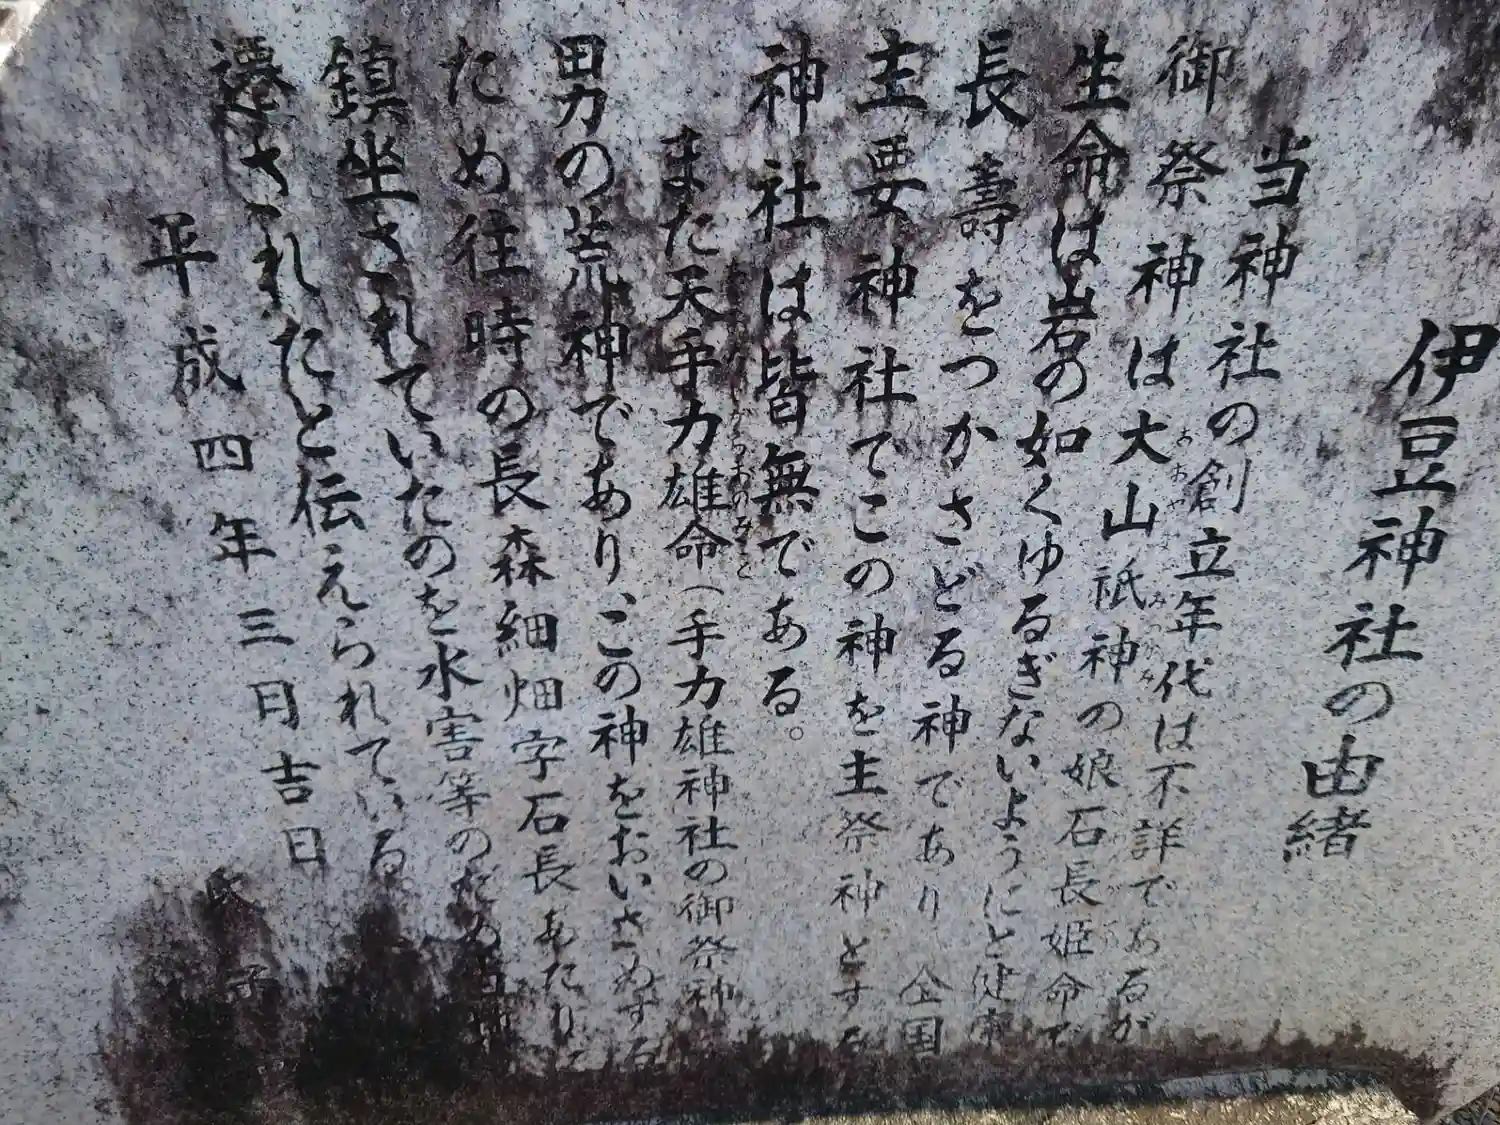 伊豆神社の由緒
当神社の創立年代は不詳であるが
御祭神は大山祇神の娘石長姫命で
おおやまみつかみ
生命は岩の如くゆるぎないようにと健康
長壽をつかさどる神であり 全国
主要神社でこの神を主祭神とする
神社は皆無である。
また天手力雄命(手力雄神社の御祭神
男の荒神であり、この神をおいさめする
ため往時の長森細畑字石長あたりに
鎮坐されていたのを水害等のため
遷されたと伝えられている
平成四年三月吉日
氏子